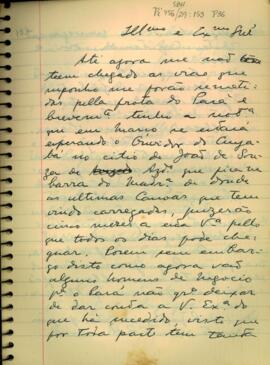 Ill.mos e Ex.mo Snr
Até agora me não
tem chegado as
supunho me forão remeti-
das pella frota do Pará e
tenho a
que em Março se
esperando o Ouvidor do Cuya-
bá no citio de João de Sou-
za de Azdo que fica na
barra do Madr.a de donde
as ultimas Canoas que tem
vindo carregadas, puzerão
cinco mezes a esta V.a pello
que todos os dias pode che-
gar. Porem sem embar-
go disto como agora vão
alguns homens de negocio
p.a o Pará não qr.o deixar
de dar conta a V. Ex.a do
que ha sucedido visto que
por toda part tem